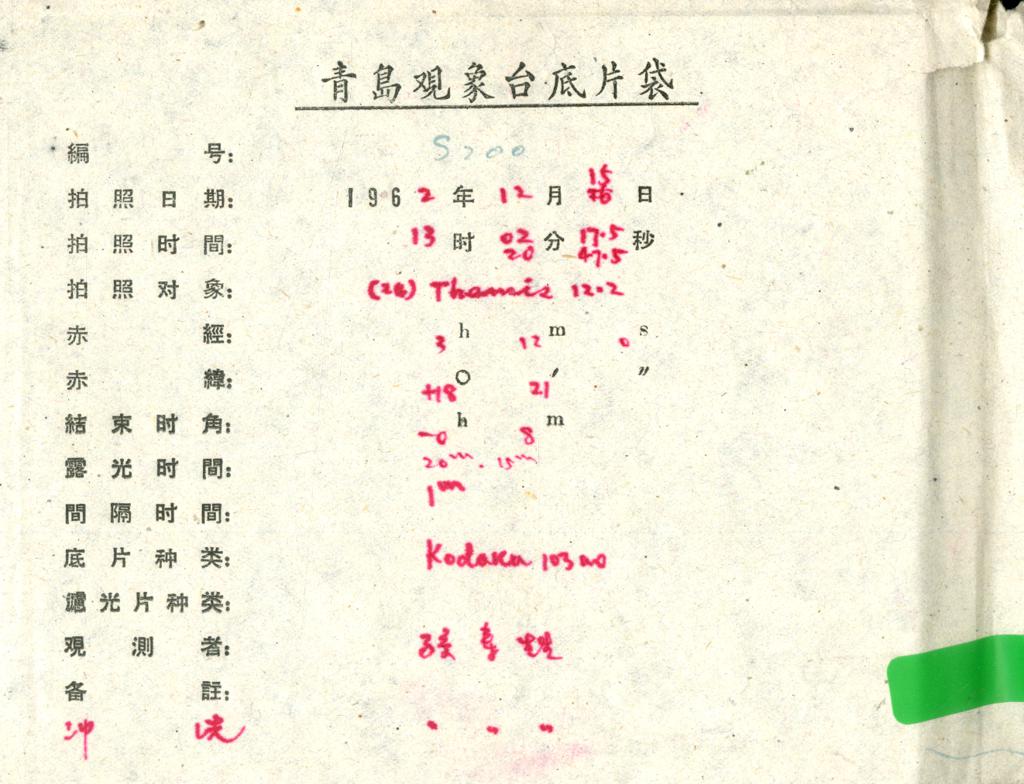 青島观象台底片袋
編号: S200
拍照日期: 1962年12月15日
拍照时間: 13时02分17.5秒
20 47.5
拍照对象: (24) Themis 12.2
赤經: 3h 12m 0s
赤緯: +18○ 21′ ″
結束时角: -0h 8m
露光时間: 20m. 15m
間隔时間: 1m
底片种类: Kodaka 103a0
濾光片种类:
观測者:
备註:
冲洗 〃 〃 〃